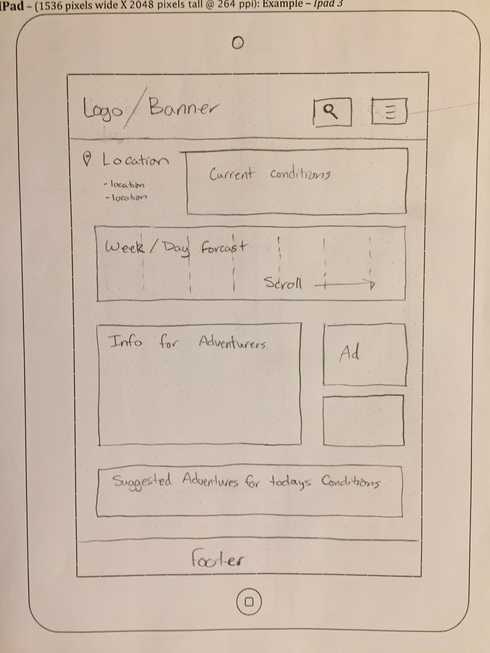 iPad – (1536 pixels wide X 2048 pixels tall @ 264 ppi): Example – Ipad 3
Logo / Banner
Location
- location
- location
Current conditions
Week / Day forcast
Scroll
Info for Adventurers
Ad
Suggested Adventures for todays Conditions
footer